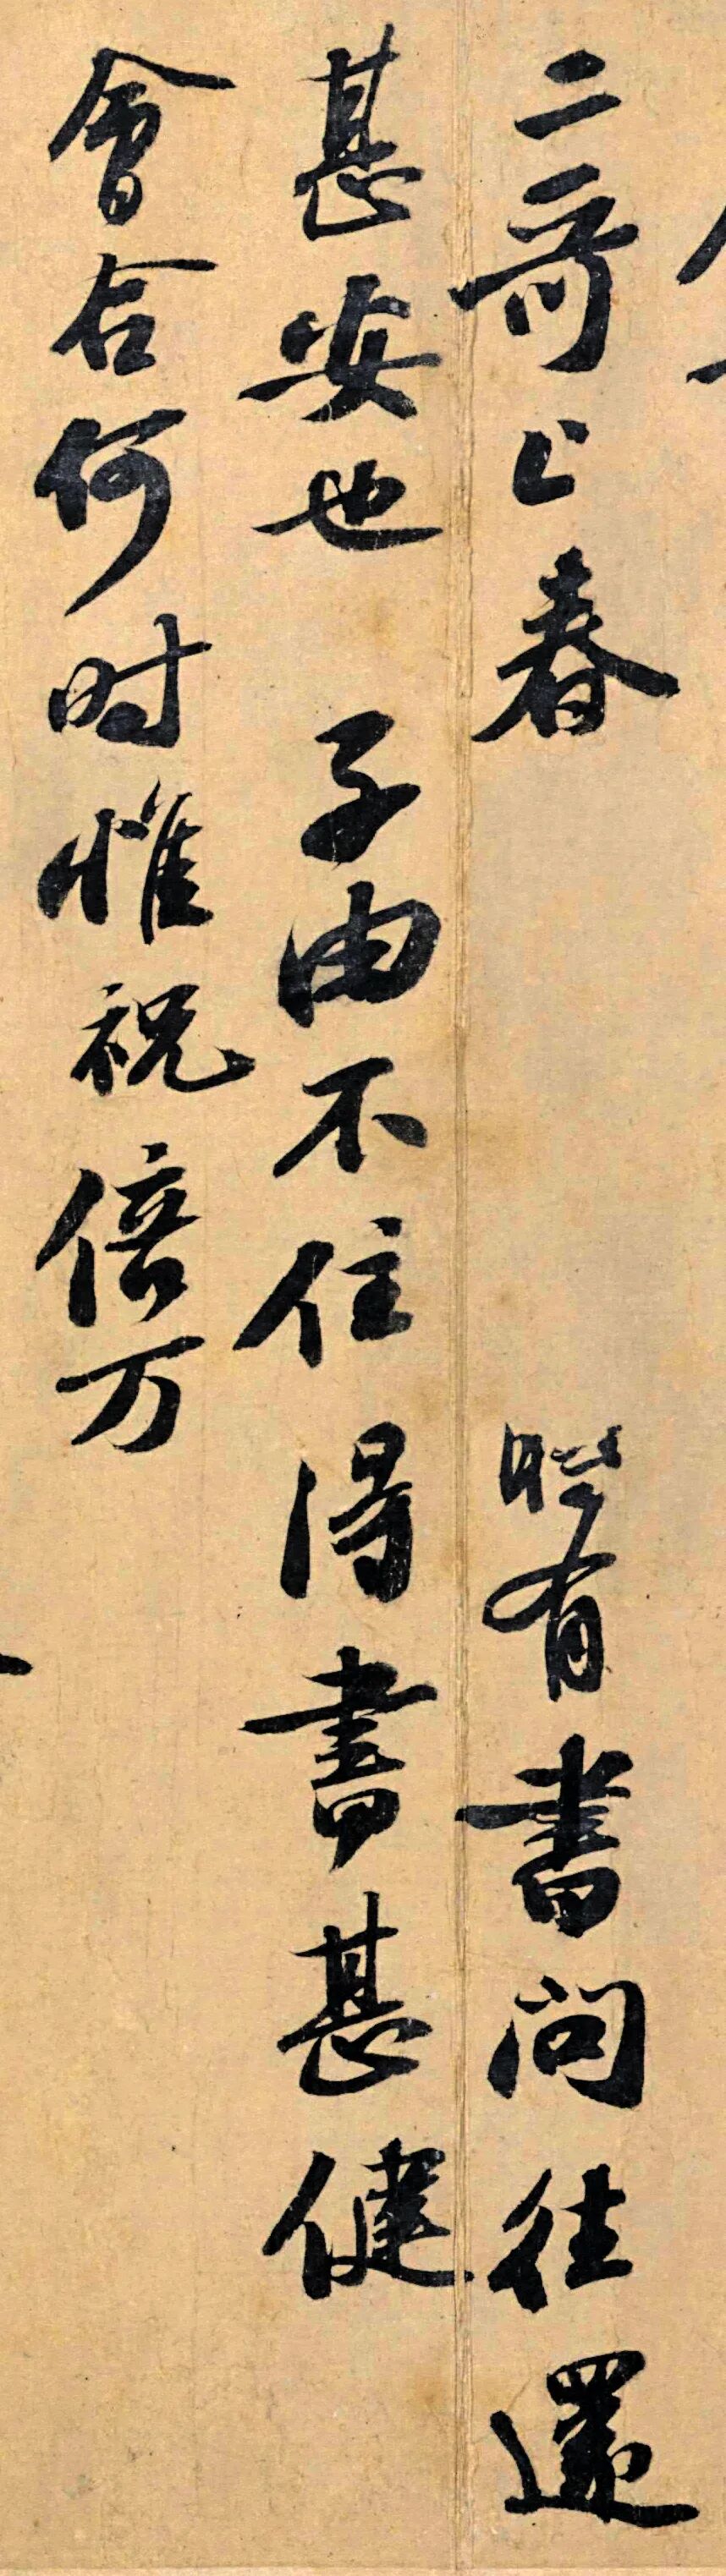 二哥上春 有書問往還
甚安也 子由不住得書甚健
會合何时惟祝倍万